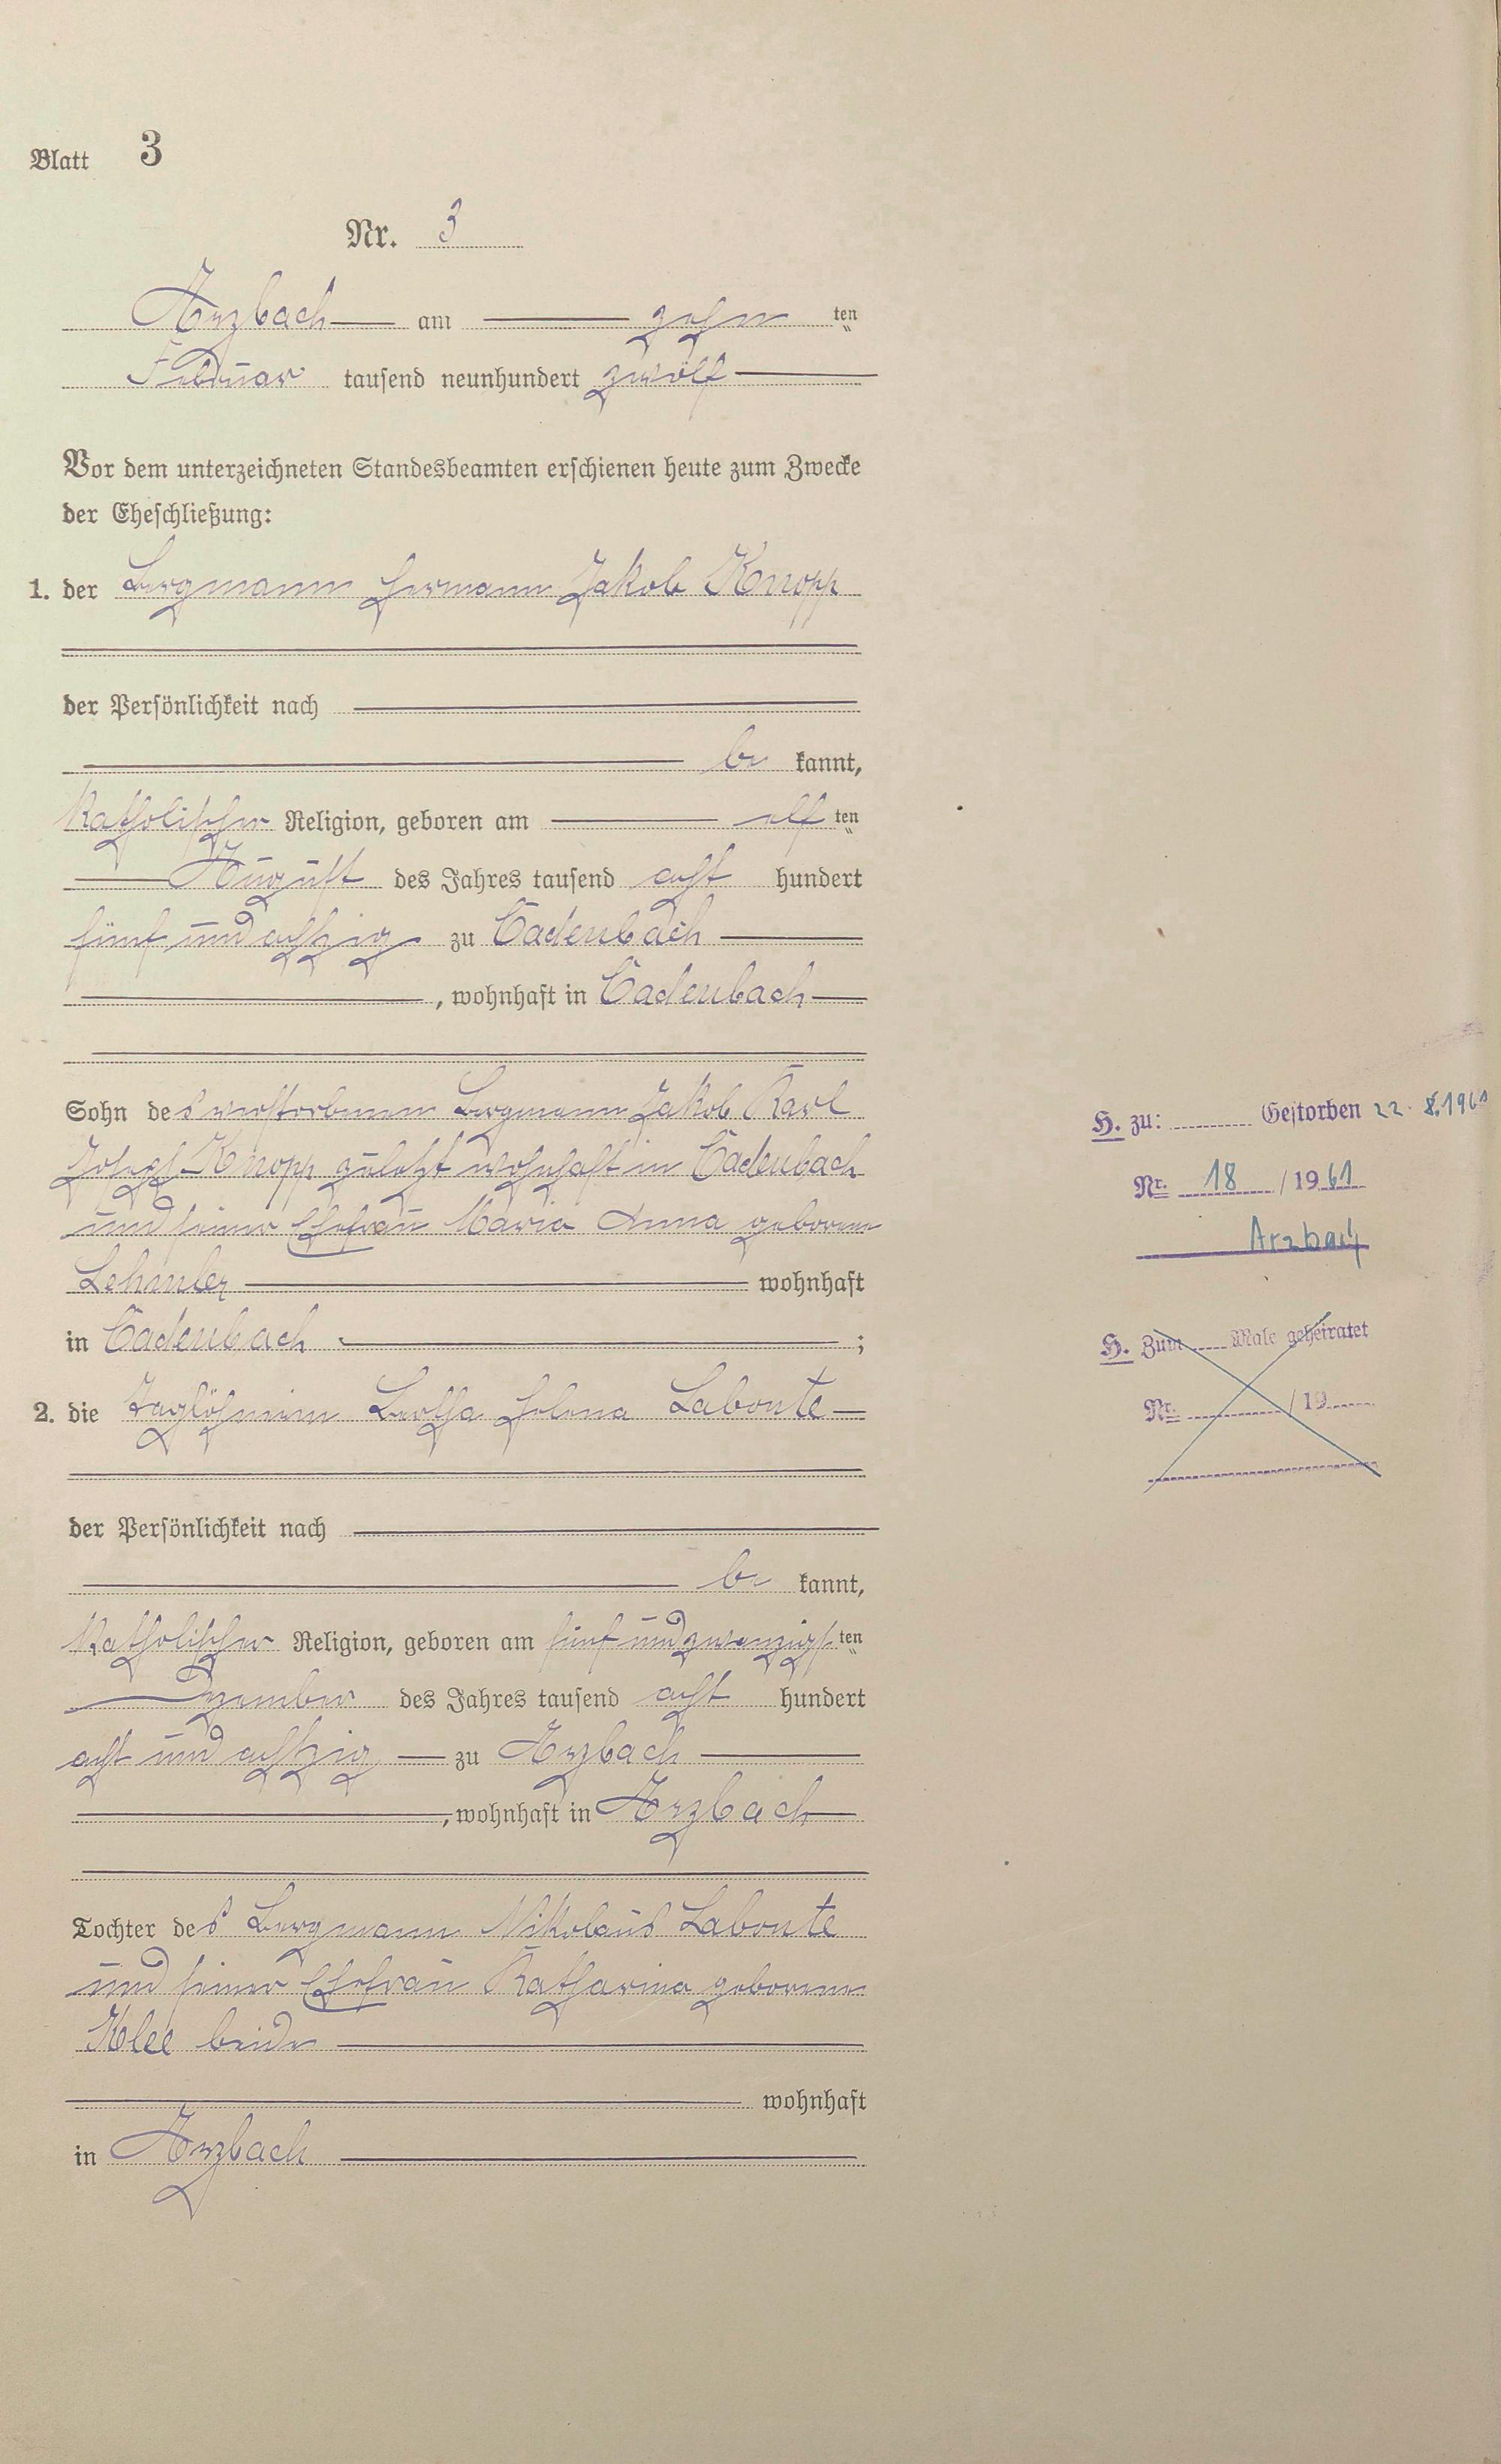 Blatt 3
Nr. 3
Arzbach am zehn ten
Februar tausend neunhundert zwölf
Vor dem unterzeichneten Standesbeamten erschienen heute zum Zwecke
der Eheschließung:
1. der Bergmann Hermann Jakob Knopp
der Persönlichkeit nach
be kannt,
katholischer Religion, geboren am elf ten
August des Jahres tausend acht hundert
fünf und achtzig zu Cadenbach
, wohnhaft in Cadenbach
Sohn des verstorbenen Bergmann Jakob Karl
Joseph Knopp zuletzt wohnhaft in Cadenbach
und seiner Ehefrau Maria Anna geborene
Lehmler wohnhaft
in Cadenbach ;
2. die Taglöhnerin Bertha Helena Labonte
der Persönlichkeit nach
be kannt,
katholischer Religion, geboren am fünf und zwanzigsten
Dezember des Jahres tausend acht hundert
acht und achtzig zu Arzbach
, wohnhaft in Arzbach
Tochter des Bergmann Nikolaus Labonte
und seiner Ehefrau Katharina geborene
Klee beide
wohnhaft
in Arzbach
H. zu: Gestorben 22. 8. 1961
Nr. 18 / 1961
Arzbach
H. Zum Male geheiratet
Nr. / 19